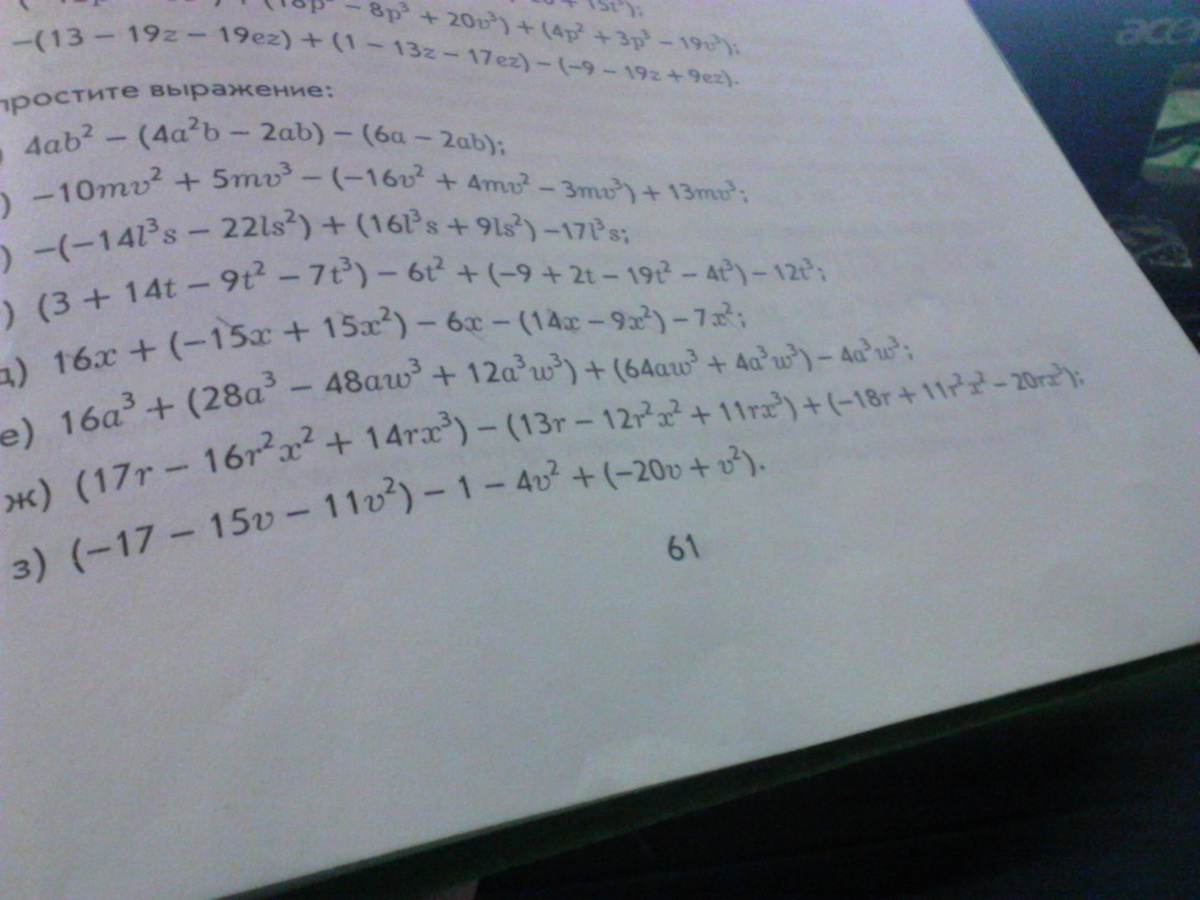 − 8p³ + 20v³) + (4p² + 3p³ − 19v³);
−(13 − 19z − 19ez) + (1 − 13z − 17ez) − (−9 − 19z + 9ez).
простите выражение:
) 4ab² − (4a²b − 2ab) − (6a − 2ab);
) −10mv² + 5mv³ − (−16v² + 4mv² − 3mv³) + 13mv³;
) −(−14l³s − 22ls²) + (16l³s + 9ls²) −17l³s;
) (3 + 14t − 9t² − 7t³) − 6t² + (−9 + 2t − 19t² − 4t³) − 12t³;
д) 16x + (−15x + 15x²) − 6x − (14x − 9x²) − 7x²;
е) 16a³ + (28a³ − 48aw³ + 12a³w³) + (64aw³ + 4a³w³) − 4a³w³;
ж) (17r − 16r²x² + 14rx³) − (13r − 12r²x² + 11rx³) + (−18r + 11r²x² − 20rx³);
з) (−17 − 15v − 11v²) − 1 − 4v² + (−20v + v²).
61
acer